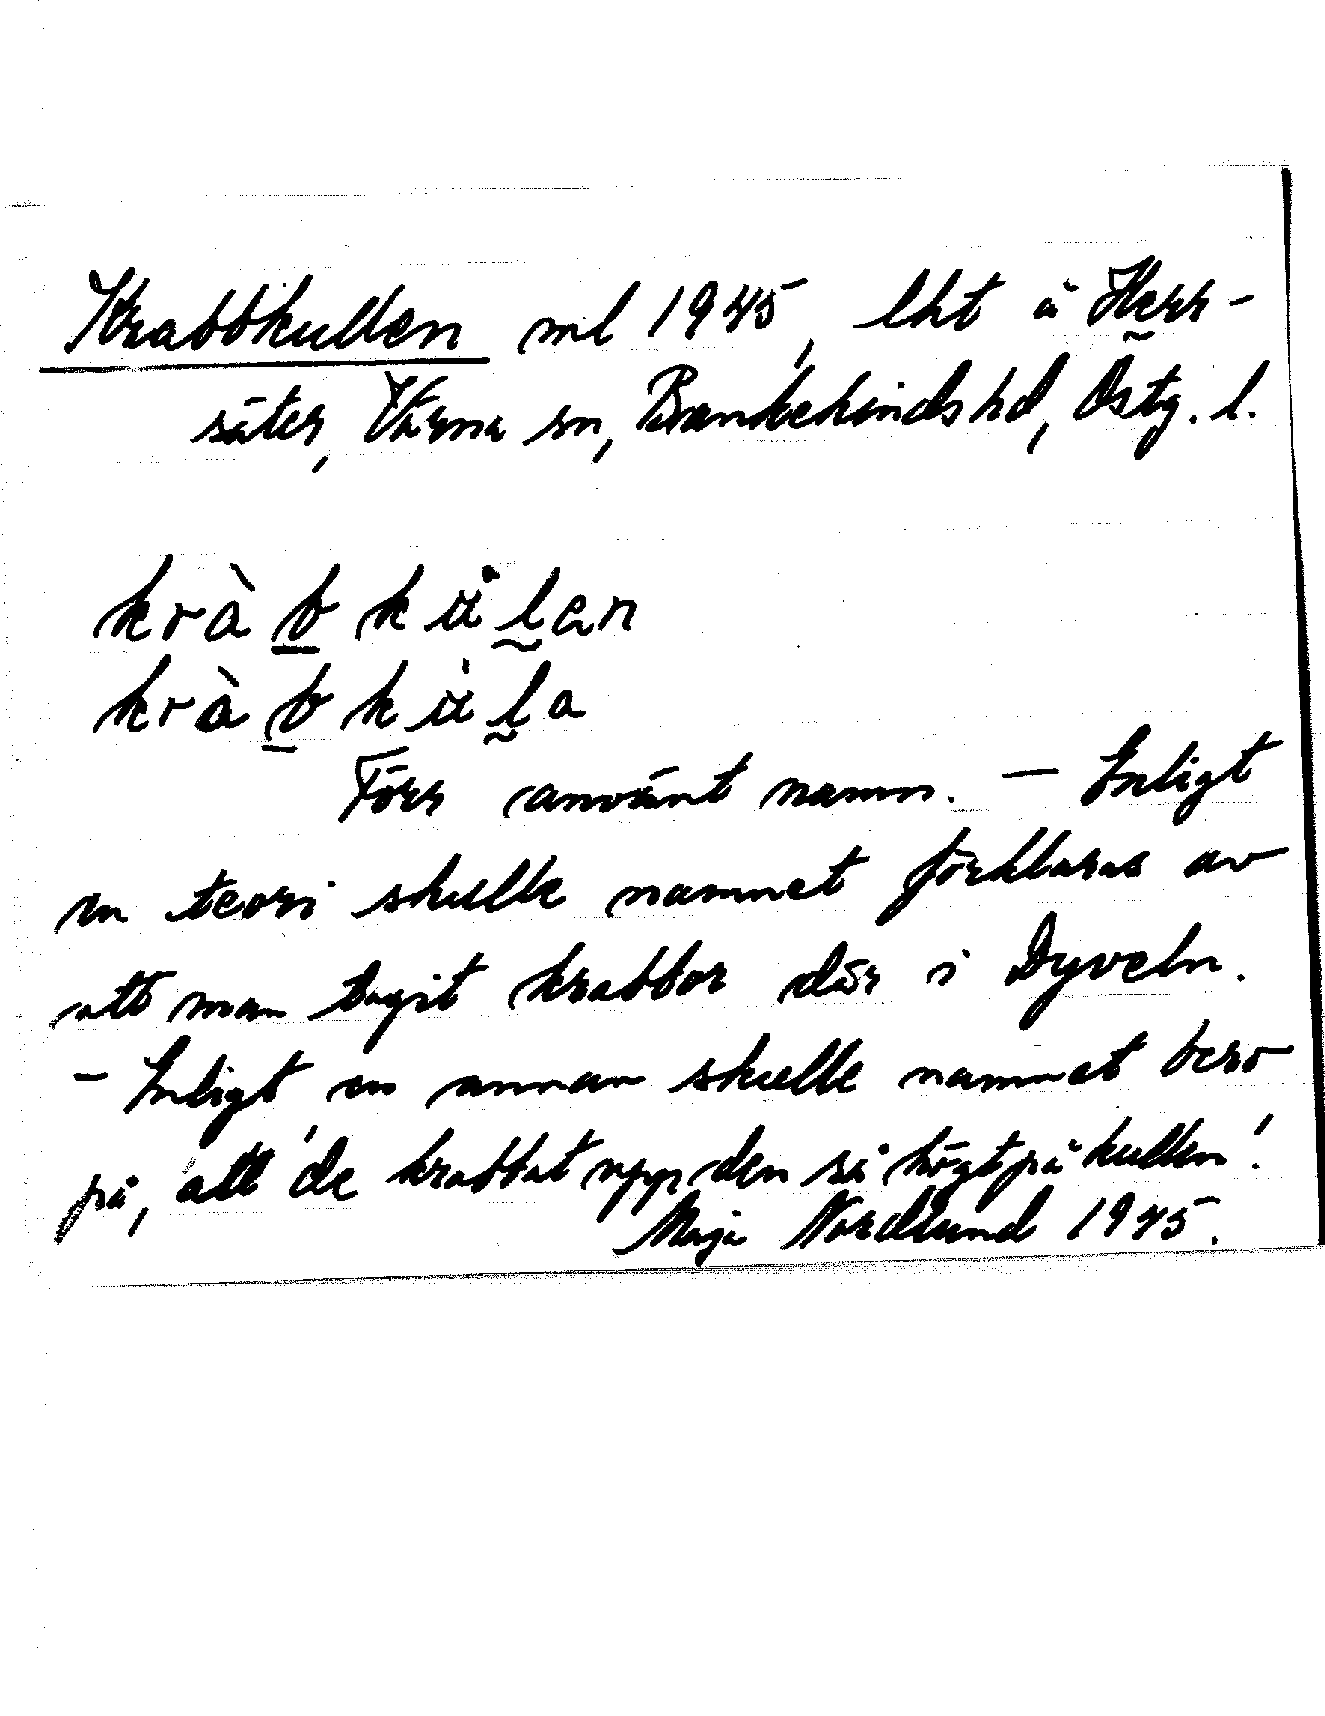 Krabbkullen ml 1945, lht å Herr-
säter, Värna sn, Bankekinds hd, Östg. l.
kràb̲kùl̰en
kràb̲kùl̰a
Förr använt namn. — Enligt
en teori skulle namnet förklaras av
att man tagit krabbor där i Dyveln.
- Enligt en annan skulle namnet bero
på, att de krabbat upp den så högt på kullen!
Maja Nordlund 1945.